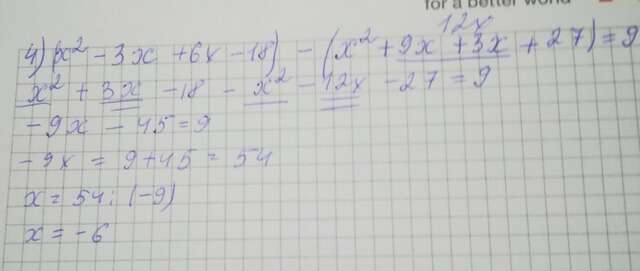 for a better world
12x
4) (x² - 3x + 6x - 18) - (x² + 9x + 3x + 27) = 9
x² + 3x - 18 - x² - 12x - 27 = 9
- 9x - 45 = 9
- 9x = 9 + 45 = 54
x = 54 : (-9)
x = - 6